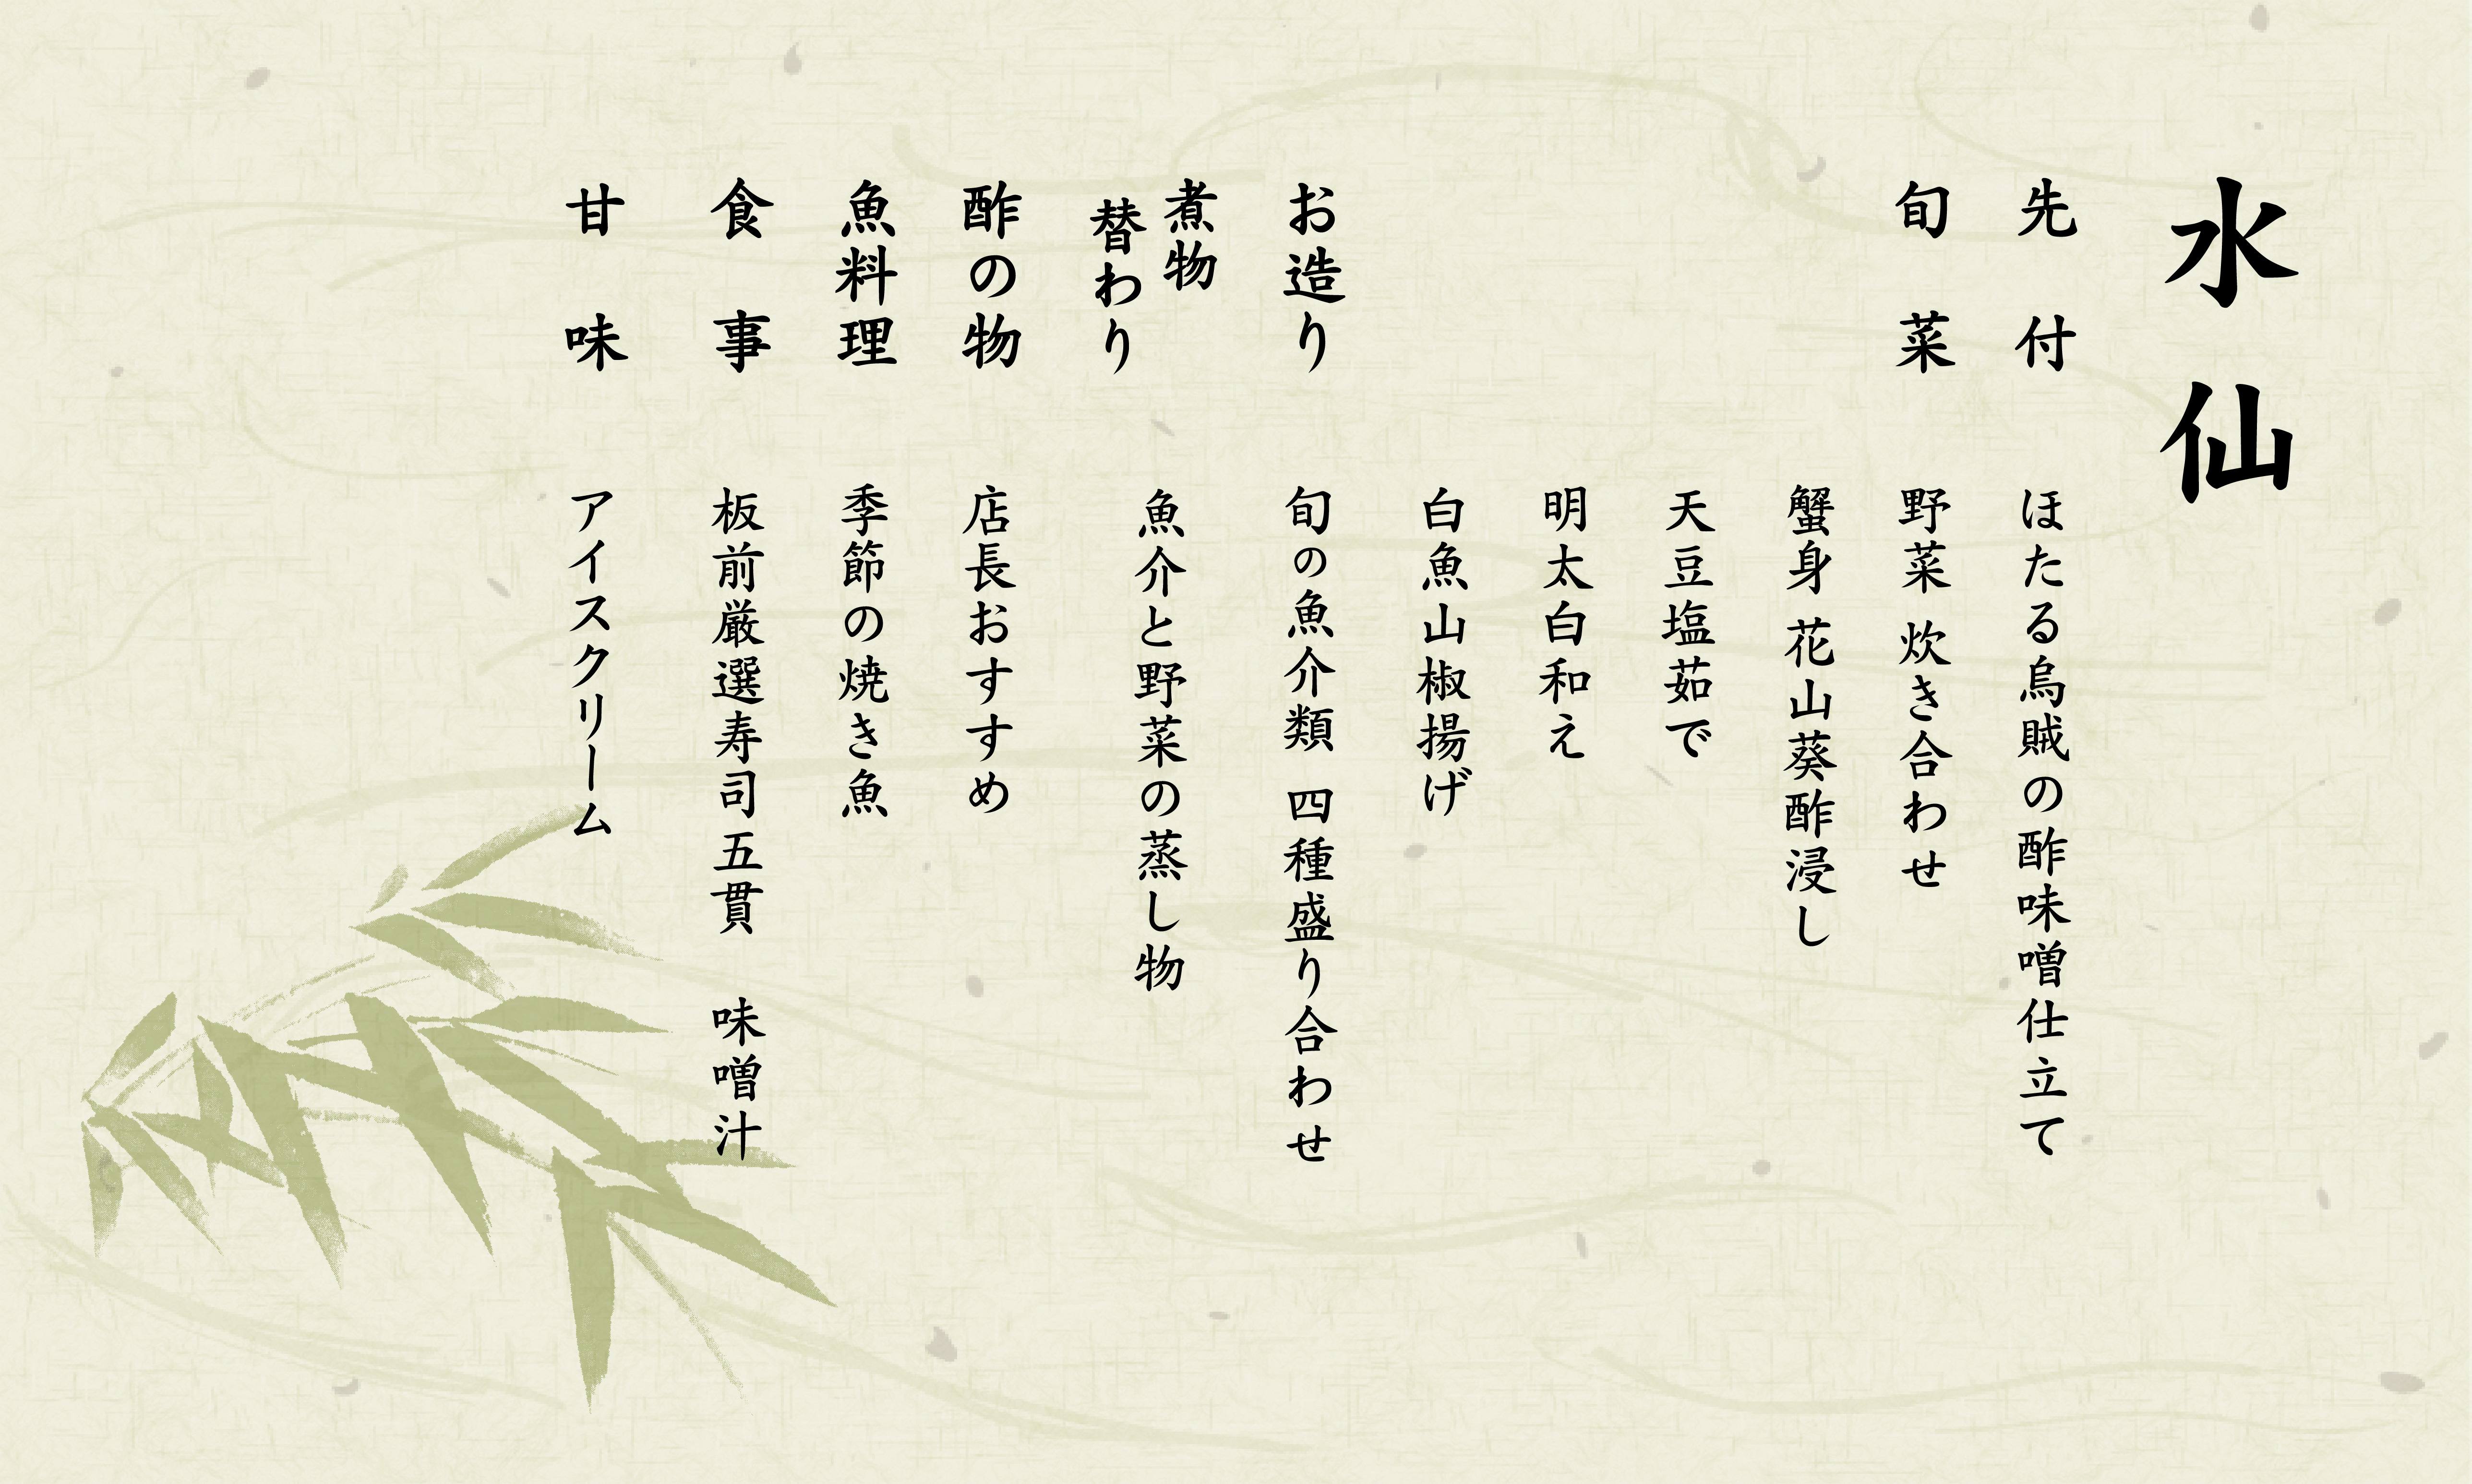 水仙
先付 ほたる烏賊の酢味噌仕立て
旬菜 野菜 炊き合わせ
蟹身 花山葵酢浸し
天豆塩茹で
明太白和え
白魚山椒揚げ
お造り 旬の魚介類 四種盛り合わせ
煮物
替わり 魚介と野菜の蒸し物
酢の物 店長おすすめ
魚料理 季節の焼き魚
食事 板前厳選寿司五貫 味噌汁
甘味 アイスクリーム